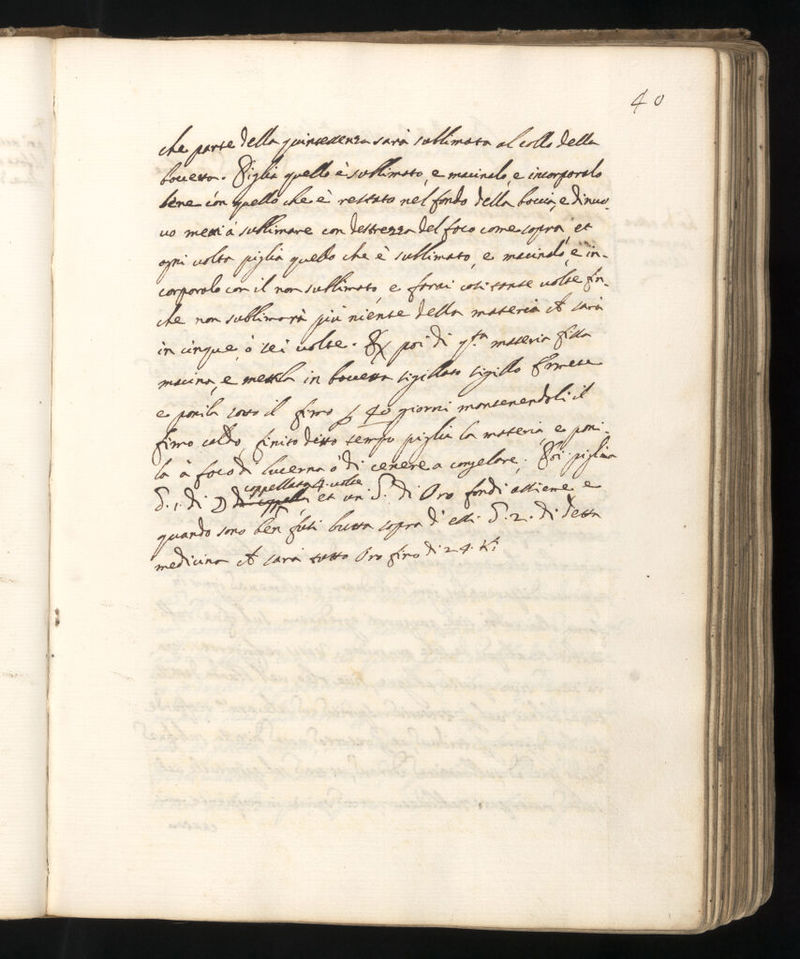 40
che parte della quintessenza sarà sublimata al collo della
boccetta. Piglia quello è sublimato, e macinalo, e incorporalo
bene con quello che è restato nel fondo della boccia, e dinuo-
uo metti à sublimare con destrezza del foco come sopra, et
ogni volta piglia quello che è sublimato, e macinalo, e in-
corporalo con il non sublimato, e farai così tante volte fin-
che non sublimarà più niente della materia et sarà
in cinque, ò sei volte. poi di q.ta materia fissa
macina, e mettila in boccetta sigillata sigillo Ermete
e ponila sotto il fimo p 40 giorni mantenendoli il
fimo caldo, finito detto tempo piglia la materia, e poni-
la à foco di lucerna ò di cenere a congelare. Poi piglia
coppellata 4. volte
1. di ☽ et un di Oro fondi assieme e
quando sono ben fusi butta sopra d'essi 2. di detta
medicina et sarà tutto Oro fino di 24. K.i